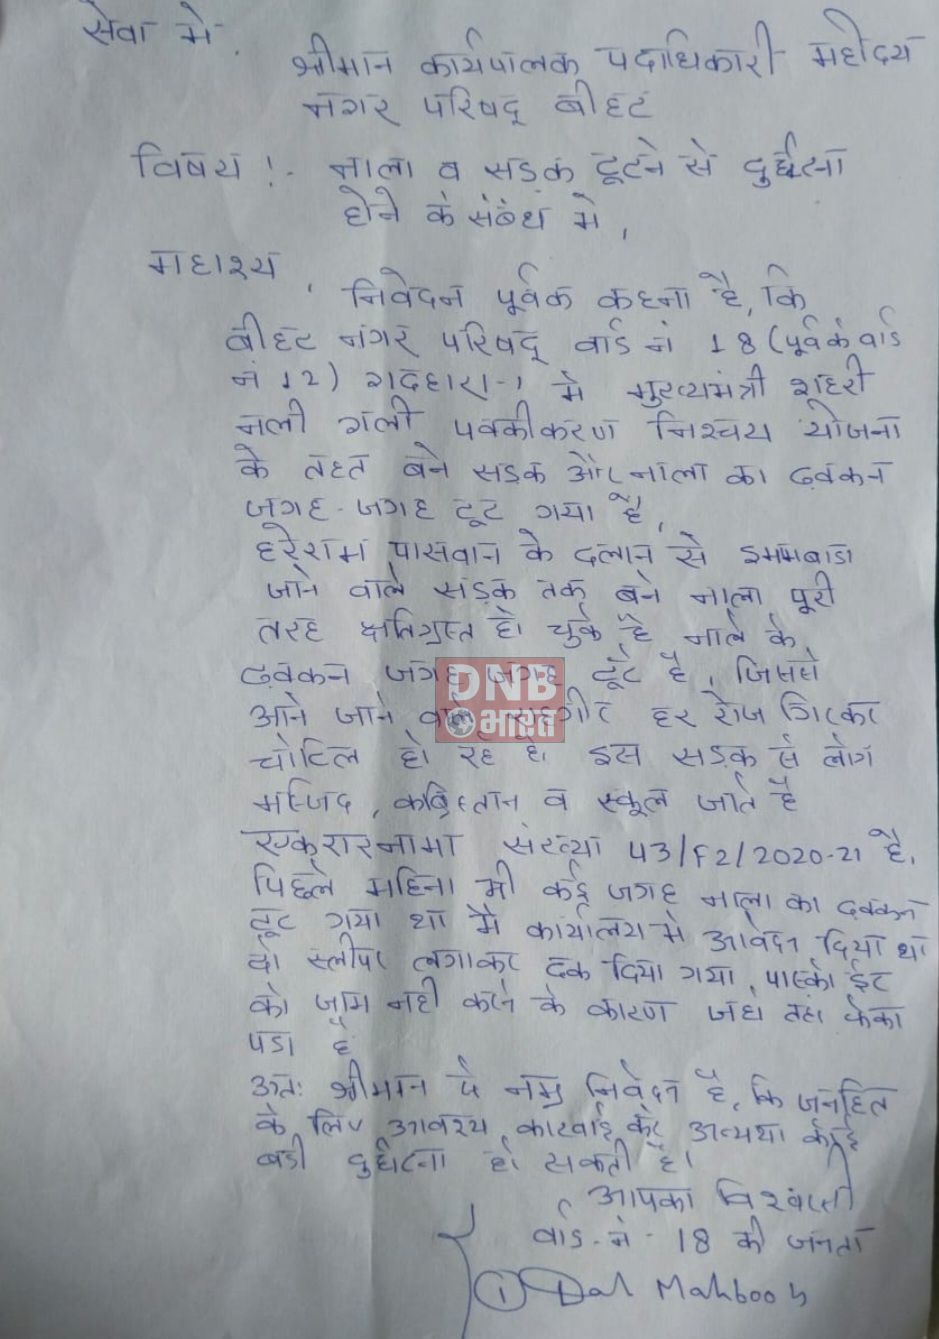 सेवा मे.
श्रीमान कार्यपालक पदाधिकारी महोदय
नगर परिषद् बीहट
विषय !- नाला व सड़क टूटने से दुर्घटना
होने के संबंध मे,
महाश्य,
निवेदन पूर्वक कहना है, कि
बीहट नगर परिषद् वार्ड नं 18 (पूर्व के वार्ड
नं 12) गढहारा-1 मे मुख्यमंत्री शहरी
नली गली पक्कीकरण निश्चय योजना
के तहत बने सड़क और नाला का ढक्कन
जगह-जगह टूट गया है,
हरेराम पासवान के दलान से इमामबाडा
जाने वाले सड़क तक बने नाला पूरी
तरह क्षतिग्रस्त हो चुके है नाले के
ढक्कन जगह जगह टूटे है, जिससे
DNB
भारत
आने जाने वाले राहगीर हर रोज गिरकर
चोटिल हो रहे है। इस सड़क से लोग
मस्जिद, कब्रिस्तान व स्कूल जाते है
एकरारनामा संख्या 43/F2/2020-21 है.
पिछले महिना भी कई जगह नाला का ढक्कन
टूट गया था मै कार्यालय मे आवेदन दिया था
दो स्लीपर लगाकर ढक दिया गया, ईट
को जाम नही करने के कारण जहां तहां फेका
पडा है
अतः श्रीमान से नम्र निवेदन है, कि जनहित
के लिए आवश्य कारवाई करे अन्यथा कोई
बडी दुर्घटना हो सकती है।
आपका विश्वासी
वार्ड-नं-18 की जनता
① Mahboob